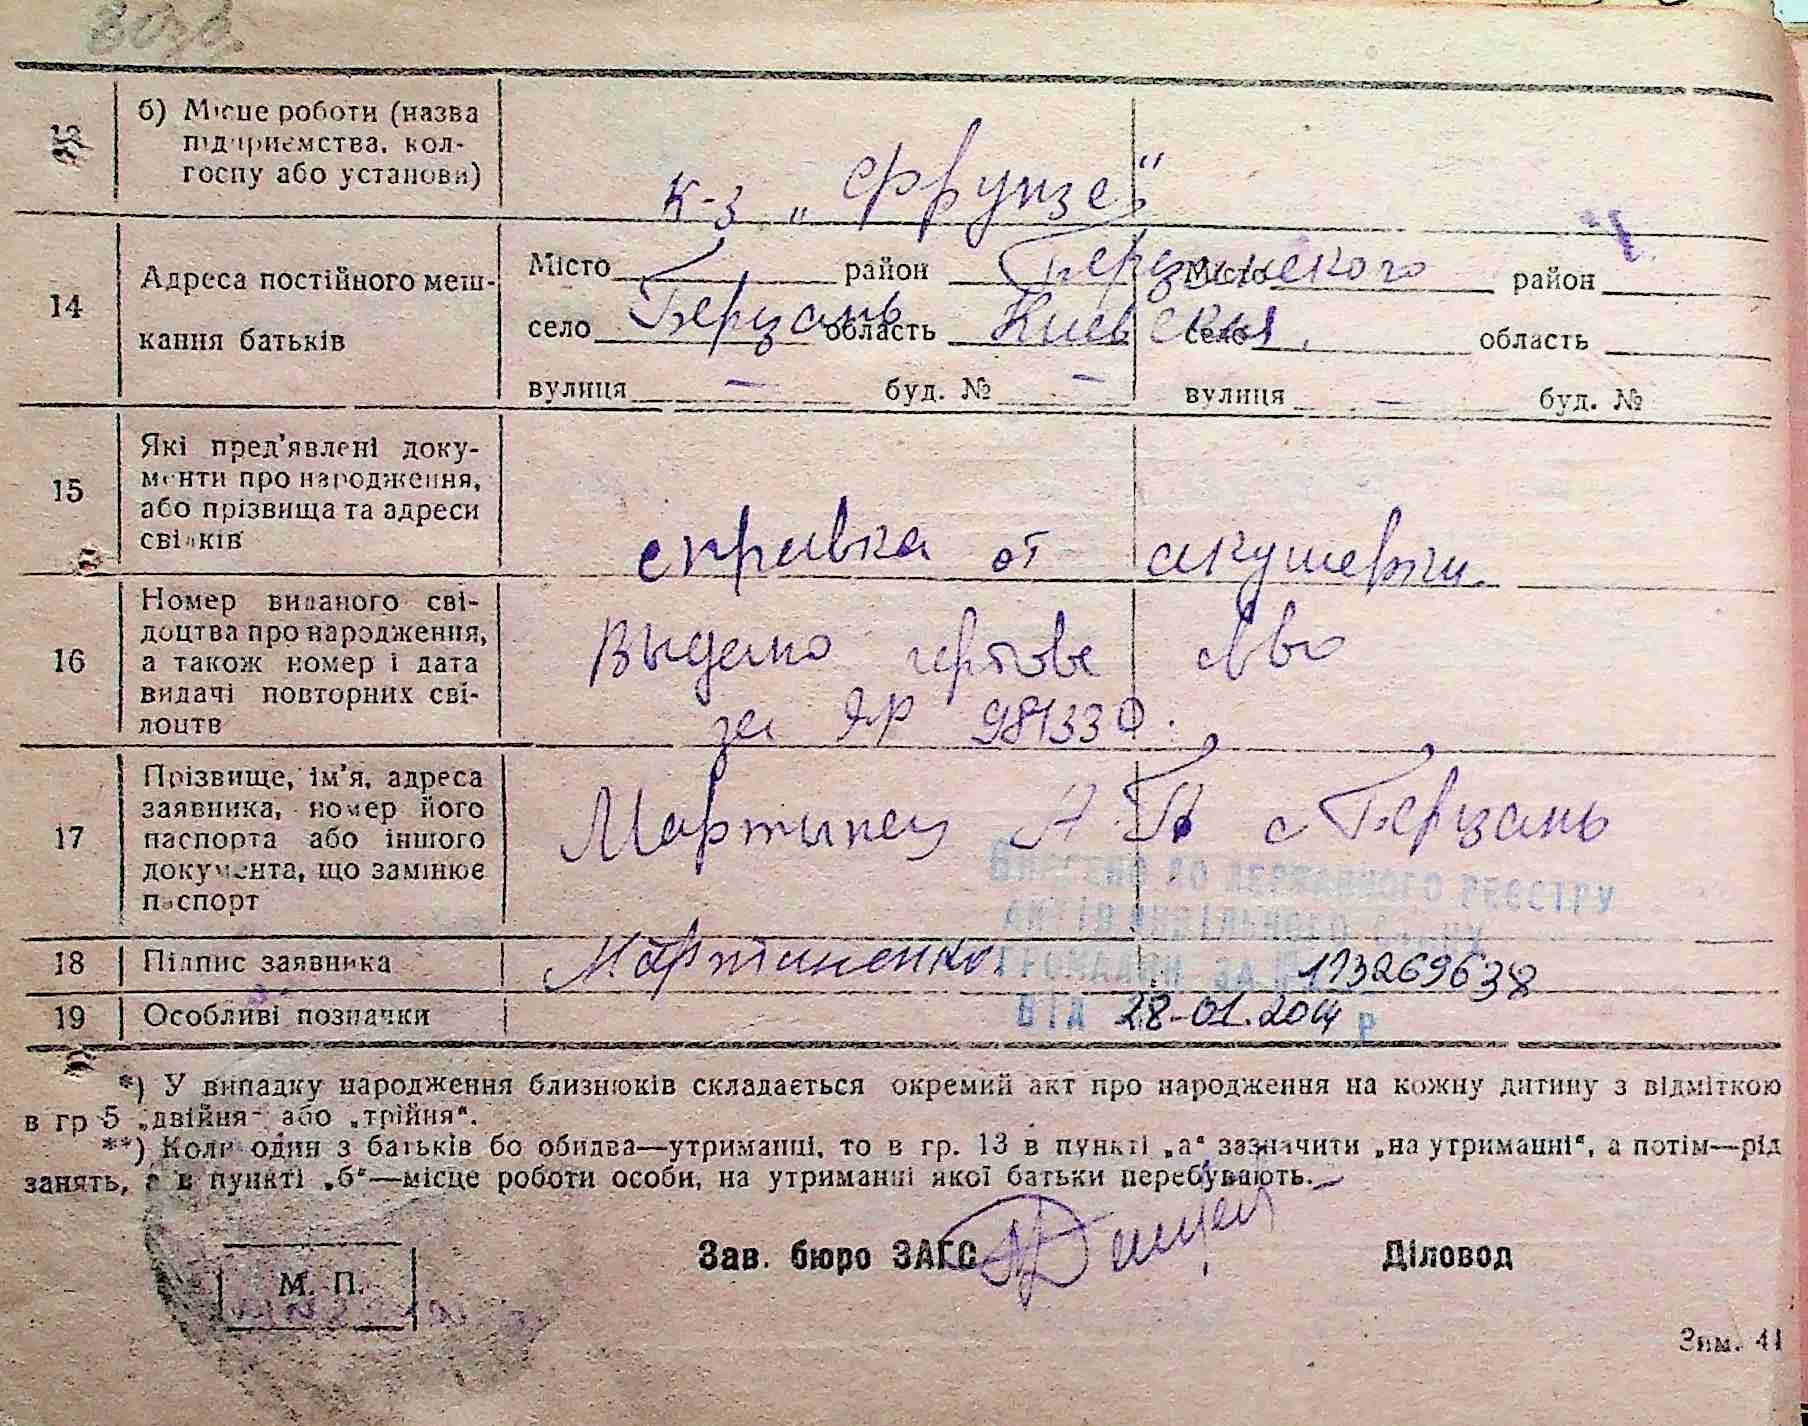 б) Місце роботи (назва
підприємства, кол-
госпу або установи)
к-з „Фрунзе“
14
Адреса постійного меш-
кання батьків
Місто район Березанского Місто район
село Березань область Киевский село область
вулиця — буд. № — вулиця — буд. №
15
Які пред'явлені доку-
менти про народження,
або прізвища та адреси
свідків
справка от акушерки
16
Номер виданого сві-
доцтва про народження,
а також номер і дата
видачі повторних сві-
доцтв
Выдано св-во
за 981330.
17
Прізвище, ім'я, адреса
заявника, номер його
паспорта або іншого
документа, що замінює
паспорт
с Березань
ВНЕСЕНО ДО ДЕРЖАВНОГО РЕЄСТРУ
АКТІВ ЦИВІЛЬНОГО СТАНУ
ГРОМАДЯН ЗА № 113269638
ВІД 28-01.2014 р
18 Підпис заявника Мартиненко
19 Особливі позначки
*) У випадку народження близнюків складається окремий акт про народження на кожну дитину з відміткою
в гр 5 „двійня“ або „трійня“.
**) Коли один з батьків бо обидва—утриманці, то в гр. 13 в пункті „а“ зазначити „на утриманні“, а потім—рід
занять, а в пункті „б“—місце роботи особи, на утриманні якої батьки перебувають.
Зав. бюро ЗАГС Діловод
М. П.
Зим. 41